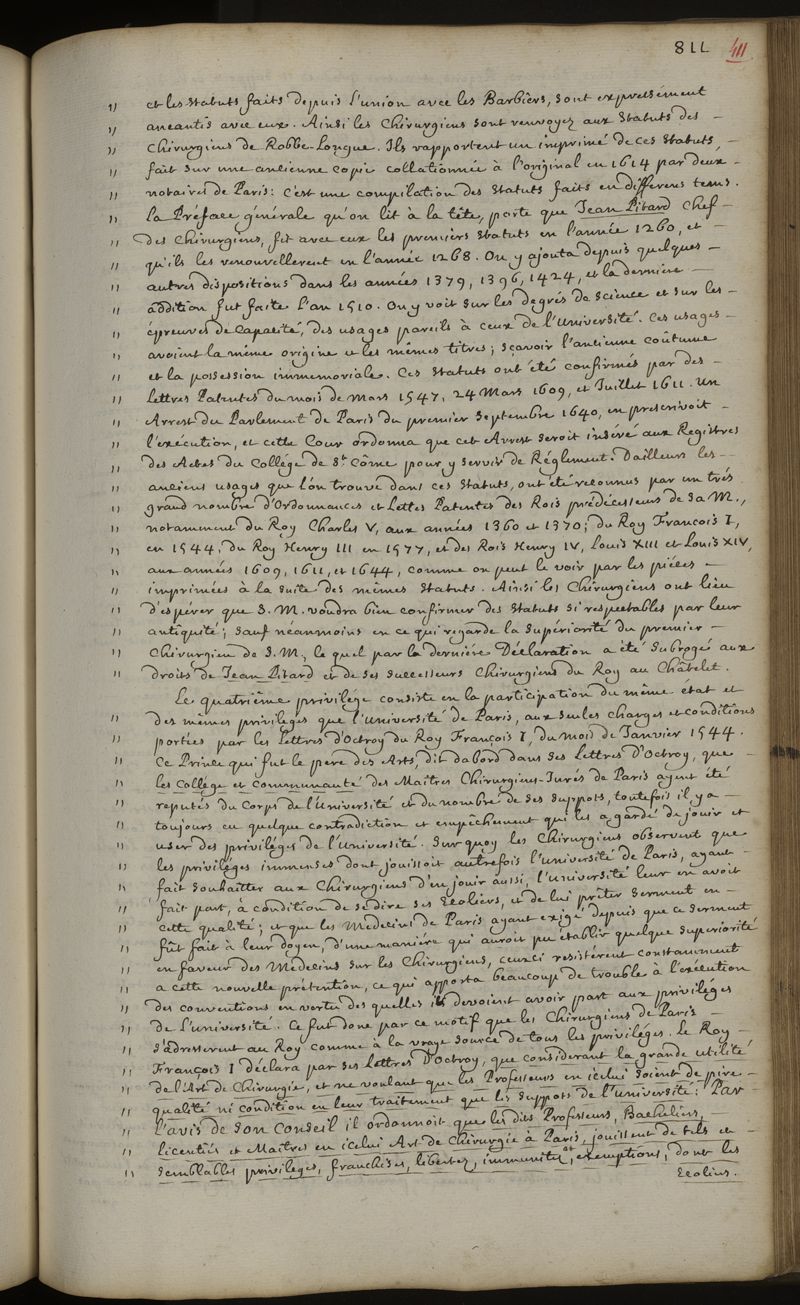 811 411
" et les Statuts faits depuis l'union avec les Barbiers, sont expressément
" aneantis avec eux. Ainsi les Chirurgiens sont renvoyez aux Statuts des —
" Chirurgiens de Robbe-Longue. Ils rapportent un imprimé de ces Statuts, —
" fait sur une ancienne copie collationnée à l'original en 1614 par deux —
" notaires de Paris: c'est une compilation des Statuts faits en differens tems.
" La Préface générale qu'on lit à la tête, porte que Jean Pitard Chef —
" des Chirurgiens, fit avec eux les premiers Statuts en l'année 1260, et —
" qu'ils les renouvellerent en l'année 1268. On y ajouta depuis quelques —
" autres dispositions dans les années 1379, 1396, 1424, et la derniere —
" addition fut faite l'an 1510. On y voit sur les degrés de science et sur les —
" épreuves de capacité, des usages pareils à ceux de l'Université. Ces usages —
" avoient la même origine et les mêmes titres; sçavoir l'ancienne coûtume
" et la possession immemoriale. Ces Statuts ont été confirmés par des —
" Lettres Patentes du mois de Mars 1547, 24 Mars 1609, et Juillet 1611. Un
" Arrest du Parlement de Paris du premier Septembre 1640, en prescrivoit —
" l'exécution, et cette Cour ordonna que cet Arrest seroit inséré aux Registres
" des Actes du Collége de St. Côme pour y servir de Réglement. D'ailleurs les —
" anciens usages que l'on trouve dans ces Statuts, ont été reconnus par un très
" grand nombre d'Ordonnances et Lettes Patentes des Rois prédécesseurs de Sa M.,
" notamment du Roy Charles V, aux années 1360 et 1370; du Roy François I,
" en 1544, du Roy Henry III en 1577, et des Rois Henry IV, Louis XIII et Louis XIV,
" aux années 1609, 1611, et 1644, comme on peut le voir par les piéces —
" imprimées à la suite des mêmes Statuts. Ainsi les Chirurgiens ont lieu
" d'espérer que S. M. voudra bien confirmer des Statuts si respectables par leur
" antiquité; sauf néanmoins en ce qui regarde la supériorité du premier —
" Chirurgien de S. M., le quel par la derniére Déclaration a été subrogé aux
" droits de Jean Pitard et de ses successeurs Chirurgiens du Roy au Châtelet.
Le quatriême privilége consiste en la participation du même état et
" des mêmes priviléges que l'Université de Paris, aux seules charges et conditions
" portées par les Lettres d'Octroy du Roy François I, du mois de Janvier 1544.
" Ce Prince qui fut le pere des Arts, dit d'abord dans ses Lettres d'Octroy, que —
" les Collége et Communauté des Maîtres Chirurgiens-Jurés de Paris ayent été
" reputés du Corps de l'Université et du nombre de ses suppots, toutefois il y a —
" toujours eu quelque contradiction et empêchement qui les a gardé de jouir et
" user des priviléges de l'Université. Sur quoy les Chirurgiens observent que
" les priviléges immenses dont jouissoit autrefois l'Université de Paris, ayant —
" fait souhaitter aux Chirurgiens d'en jouir aussi, l'Université leur en avoit
" fait part, à condition de se dire ses Ecoliers, et de lui prêter serment en —
" cette qualité; et que les Medecins de Paris ayant exigé depuis que ce serment
" fût fait à leur Doyen, d'une maniére qui auroit pu établir quelque superiorité
" en faveur des Medecins sur les Chirurgiens, ceux-ci resistérent constamment
" a cette nouvelle prétention, ce qui apporta beaucoup de trouble à l'exécution
" des conventions en vertu des quelles ils devoient avoir part aux priviléges
" de l'Université. Ce fut donc par ce motif que les Chirurgiens de Paris —
" s'adresserent au Roy comme à la vraye source de tous les priviléges. Le Roy —
" François I déclara par ses Lettres d'Octroy, que considerant la grande utilité
" de l'Art de Chirurgie, et ne voulant que les Professeurs en icelui soient de pire —
" qualité ni condition en leur traitement que les suppots de l'Université: Par —
" l'avis de son Conseil il ordonnoit que les dits Professeurs, Bacheliers, —
" licentiés et Maîtres en icelui Art de Chirurgie à Paris, jouissent de tels et —
" semblables priviléges, franchises, libertez, immunitez et exemptions, dont les
Ecoliers.